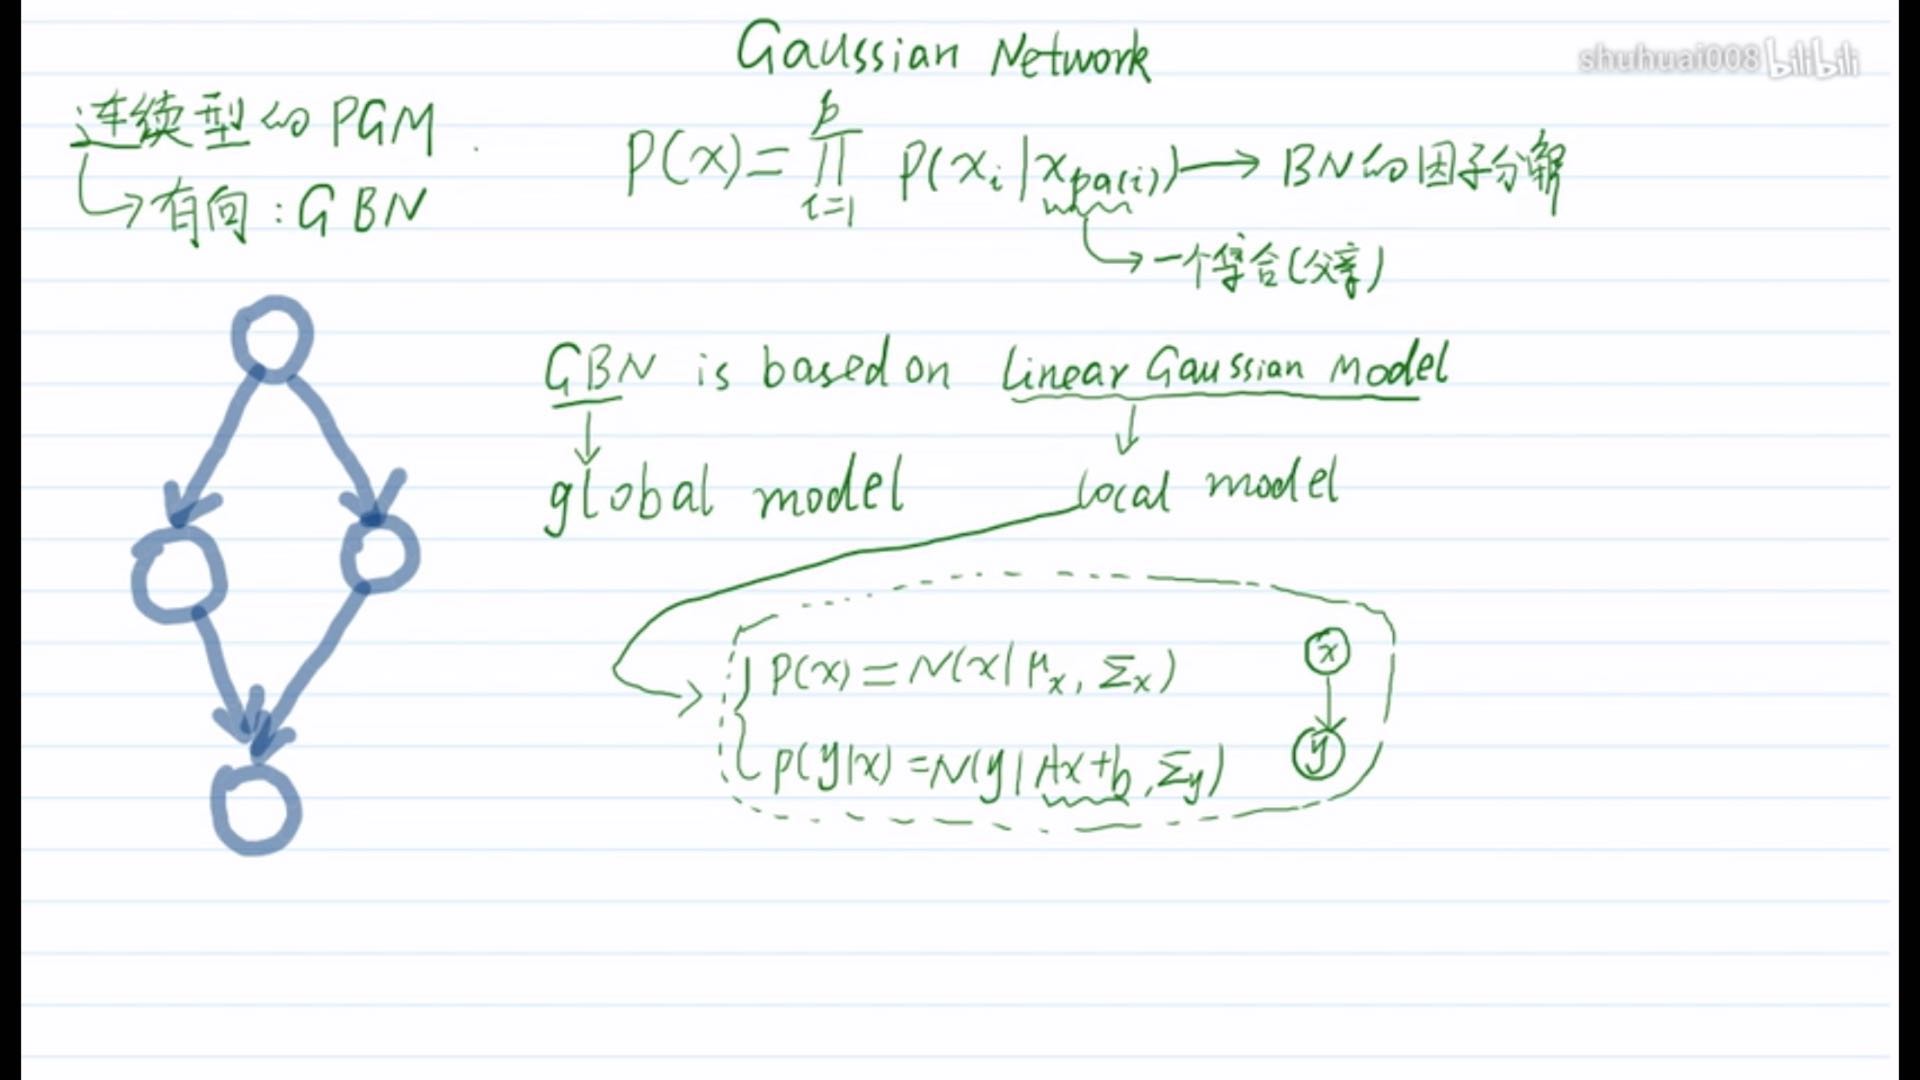 Gaussian Network
shuhuai008 bilibili
连续型的 PGM.
有向: GBN
P(x) = ∏_{i=1}^{p} P(x_i | x_{pa(i)}) → BN的因子分解
→ 一个集合(父亲)
GBN is based on Linear Gaussian Model
global model
local model
P(x) = N(x | μ_x, Σ_x)
x
P(y|x) = N(y | Ax+b, Σ_y)
y